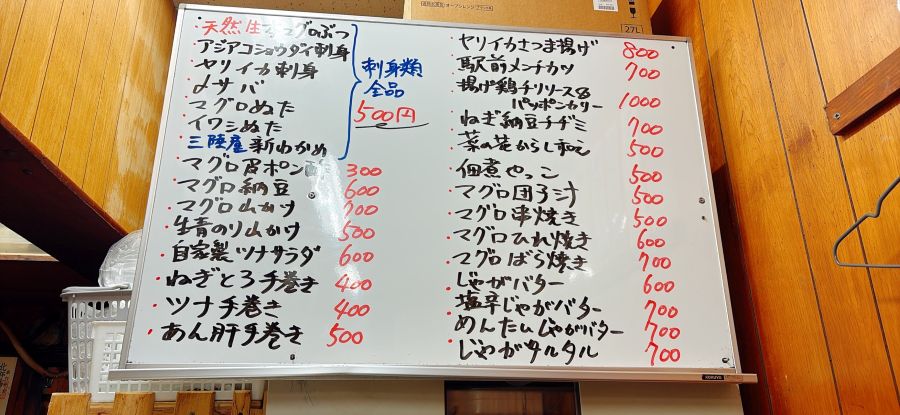 天然生マグロのぶつ
アジアコショウダイ刺身
ヤリイカ刺身
〆サバ
マグロぬた
イワシぬた
三陸産新わかめ
刺身類
全品
500円
マグロ皮ポン酢 300
マグロ納豆 600
マグロ山かけ 700
生青のり山かけ 500
自家製ツナサラダ 600
ねぎとろ手巻き 400
ツナ手巻き 400
あん肝手巻き 500
ヤリイカさつま揚げ 800
駅前メンチカツ 700
揚げ鶏チリソース&
パッポンカリー 1000
ねぎ納豆チヂミ 700
菜の花からし和え 500
佃煮やっこ 500
マグロ団子汁 500
マグロ串焼き 500
マグロひれ焼き 600
マグロばら焼き 700
じゃがバター 600
塩辛じゃがバター 700
めんたいじゃがバター 700
じゃがタルタル 700
KOKUYO
27L